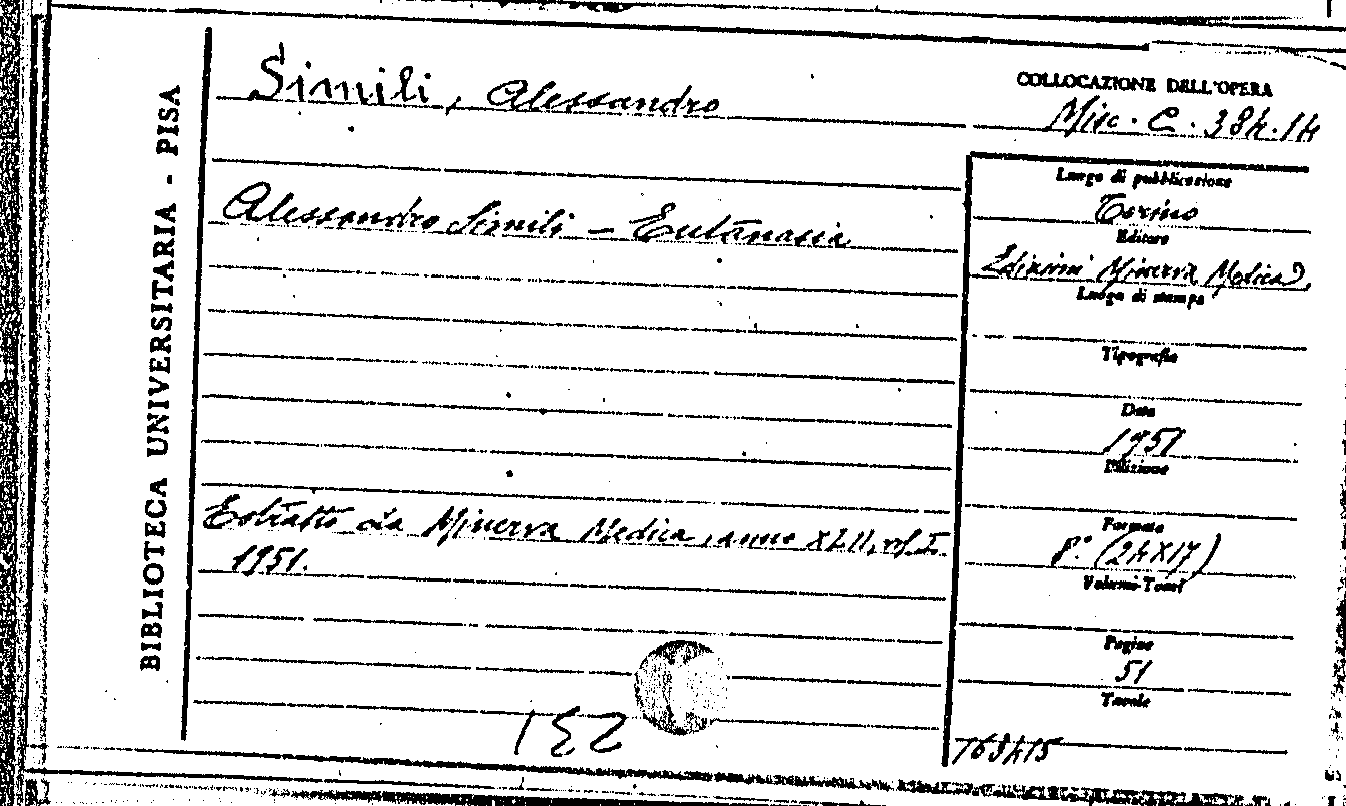 BIBLIOTECA UNIVERSITARIA - PISA
Simili, Alessandro
COLLOCAZIONE DELL'OPERA
Misc. C. 384.14
Alessandro Simili - Eutanasia
Luogo di pubblicazione
Torino
Editore
Edizioni Minerva Medica
Luogo di stampa
Tipografia
Data
1951
Edizione
Estratto da Minerva Medica, anno XLII, vol. I.
1951.
Formato
8° (24X17)
Volumi-Tomi
Pagine
51
Tavole
768415